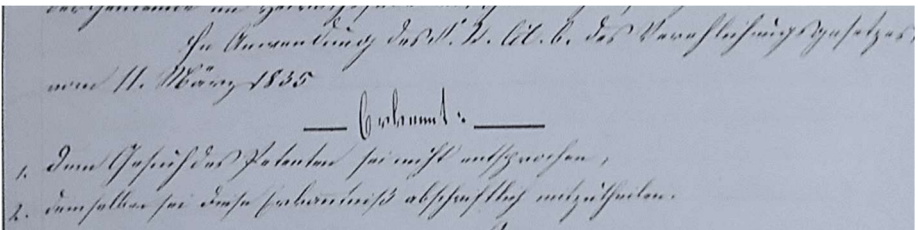 der Gemeinde im
In Anwendung des §. 2. lit. b. des Verehlichungsgesetzes
vom 11. März 1835
Erkennt:
1. Dem Gesuch des Petenten sei nicht entsprochen,
2. demselben sei diese Erkanntniß abschriftlich mitzutheilen.